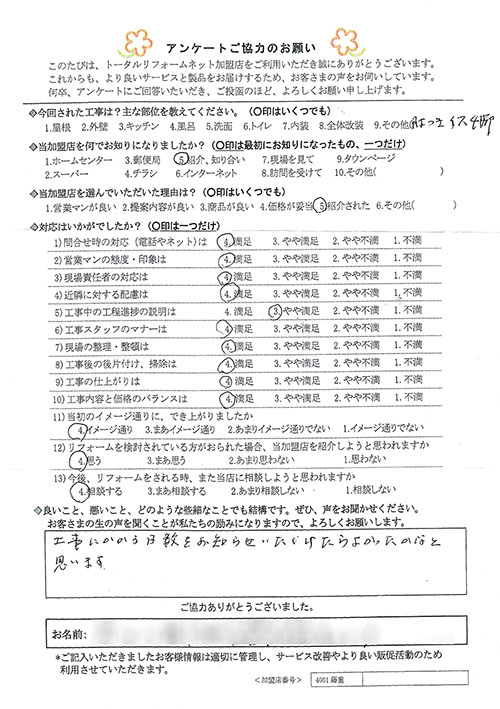 アンケートご協力のお願い
このたびは、トータルリフォームネット加盟店をご利用いただき誠にありがとうございます。
これからも、より良いサービスと製品をお届けするため、お客さまの声をお伺いしています。
何卒、アンケートにご回答いただき、ご投函のほど、よろしくお願い申し上げます。
※今回された工事は？主な部位を教えてください。（〇印はいくつでも）
1.屋根 2.外壁 3.キッチン 4.風呂 5.洗面 6.トイレ 7.内装 8.全体改装 9.その他(
※当加盟店を何でお知りになりましたか？（〇印は最初にお知りになったもの、一つだけ）
1.ホームセンター 3.郵便局 5.紹介、知り合い 7.現場を見て 9.タウンページ
2.スーパー 4.チラシ 6.インターネット 8.訪問を受けて 10.その他( )
※当加盟店を選んでいただいた理由は？（〇印はいくつでも）
1.営業マンが良い 2.提案内容が良い 3.商品が良い 4.価格が妥当 5.紹介された 6.その他( )
※対応はいかがでしたか？（〇印は一つだけ）
1）問合せ時の対応（電話やネット）は 4.満足 3.やや満足 2.やや不満 1.不満
2）営業マンの態度・印象は 4.満足 3.やや満足 2.やや不満 1.不満
3）現場責任者の対応は 4.満足 3.やや満足 2.やや不満 1.不満
4）近隣に対する配慮は 4.満足 3.やや満足 2.やや不満 1.不満
5）工事中の工程進捗の説明は 4.満足 3.やや満足 2.やや不満 1.不満
6）工事スタッフのマナーは 4.満足 3.やや満足 2.やや不満 1.不満
7）現場の整理・整頓は 4.満足 3.やや満足 2.やや不満 1.不満
8）工事後の後片付け、掃除は 4.満足 3.やや満足 2.やや不満 1.不満
9）工事の仕上がりは 4.満足 3.やや満足 2.やや不満 1.不満
10）工事内容と価格のバランスは 4.満足 3.やや満足 2.やや不満 1.不満
11）当初のイメージ通りに、でき上がりましたか
4.イメージ通り 3.まあイメージ通り 2.あまりイメージ通りでない 1.イメージ通りでない
12）リフォームを検討されている方がおられた場合、当加盟店を紹介しようと思われますか
4.思う 3.まあ思う 2.あまり思わない 1.思わない
13）今後、リフォームをされる時、また当店に相談しようと思われますか
4.相談する 3.まあ相談する 2.あまり相談しない 1.相談しない
※良いこと、悪いこと、どのような些細なことでも結構です。ぜひ、声をお聞かせください。
お客さまの生の声を聞くことが私たちの励みになりますので、よろしくお願いします。
工事にかかる日数をお知らせいただけたらよかったかなと
思います
ご協力ありがとうございました。
お名前:
*ご記入いただきましたお客様情報は適切に管理し、サービス改善やより良い販促活動のため
利用させていただきます。
＜加盟店番号＞ 4001 藤重